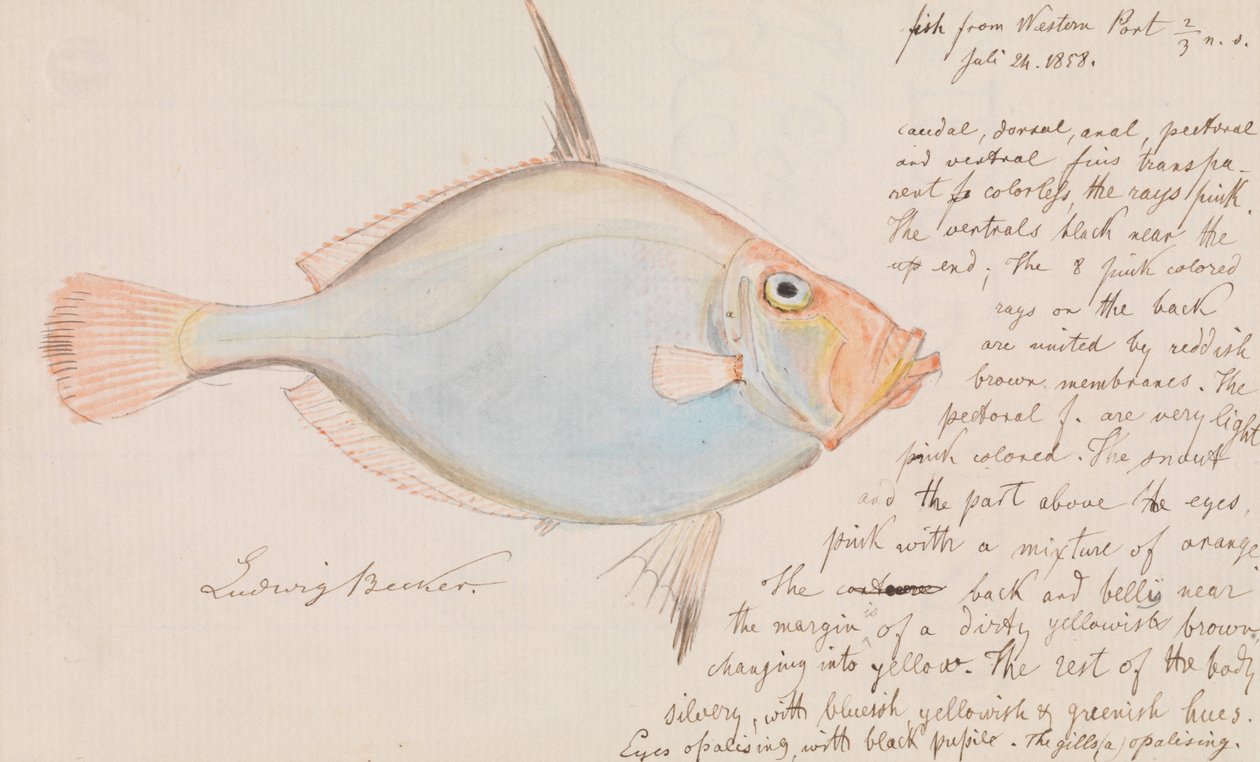 fish from Western Port 2/3 n. s.
Juli 24. 1858.
caudal, dorsal, anal, pectoral
and ventral fins transpa-
rent & colorless, the rays pink.
The ventrals black near the
end; The 8 pink colored
rays on the back
are united by reddish
brown membranes. The
pectoral f. are very light
pink colored. The snout
and the part above the eyes,
pink with a mixture of orange
The back and belly near
the margin is of a dirty yellowish brown,
changing into yellow. The rest of the body
silvery, with bluish, yellowish & greenish hues.
Eyes opalising, with black pupile. The gills (a) opalising.
a
Ludwig Becker.